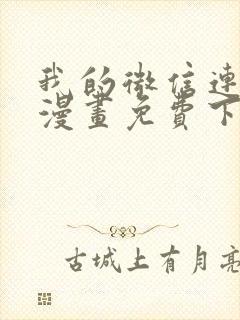 我的微信連
漫畫免費下
古城上有月亮